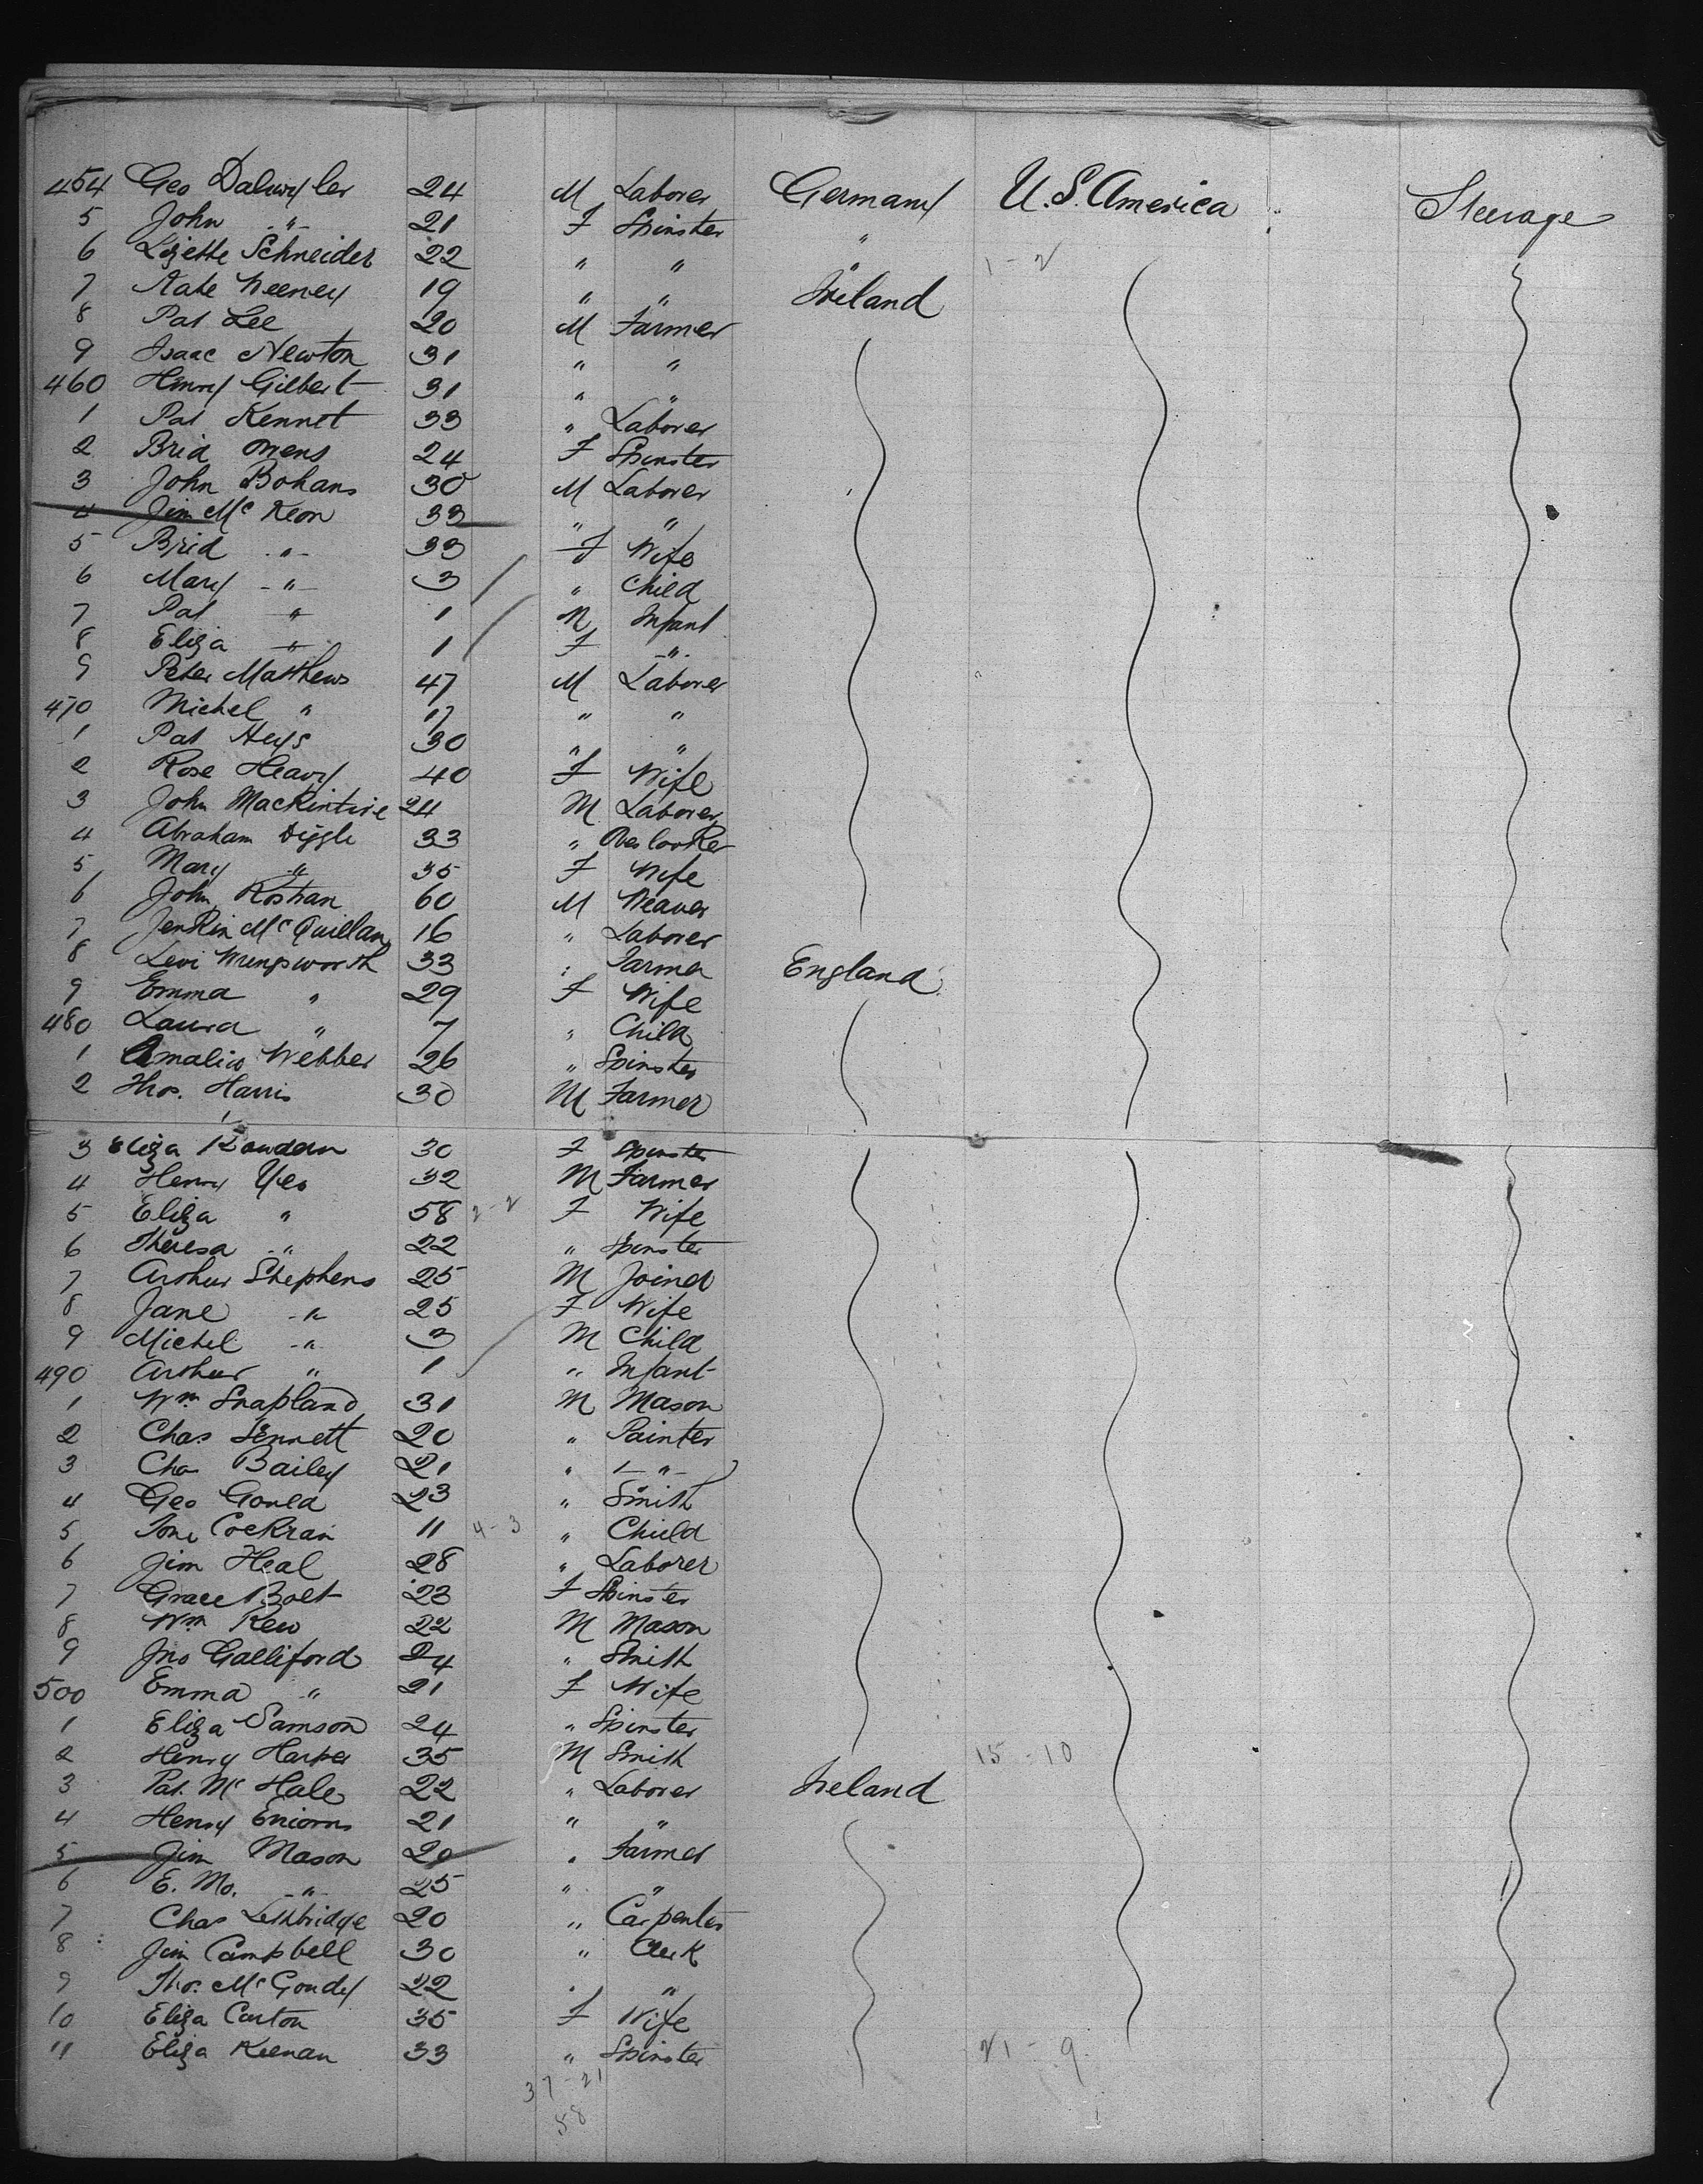 454 Geo Dalwyler 24 M Laborer Germany U.S. America Steerage
5 John " 21 F Spinster "
6 Lizette Schneider 22 " " " 1-2
7 Kate Weeney 19 " " Ireland
8 Pat Lee 20 M Farmer
9 Isaac Newton 31 " "
460 Henry Gilbert 31 " "
1 Pat Kennet 33 " Laborer
2 Brid Owens 24 F Spinster
3 John Bohans 30 M Laborer
4 Jim Mc Keon 33 " "
5 Brid " 33 F Wife
6 Mary " 3 " Child
7 Pat " 1 M Infant
8 Eliza " 1 F "
9 Peter Matthews 47 M Laborer
470 Michel " 17 " "
1 Pat Heys 30 " "
2 Rose Heavy 40 F Wife
3 John Mackintire 24 M Laborer
4 Abraham Diggle 33 " Overlooker
5 Mary " 35 F Wife
6 John Roshan 60 M Weaver
7 Jenkin Mc Quillan 16 " Laborer
8 Levi 33 " Farmer England
9 Emma " 29 F Wife
480 Laura " 7 " Child
1 Amalia Webber 26 " Spinster
2 Thos. Harris 30 M Farmer
3 Eliza Bowden 30 F Spinster
4 Henry Yeo 32 M Farmer
5 Eliza " 58 2-2 F Wife
6 Theresa " 22 " Spinster
7 Arthur Stephens 25 M Joiner
8 Jane " 25 F Wife
9 Michel " 3 M Child
490 Arthur " 1 " Infant
1 Wm Snapland 31 M Mason
2 Chas Jennett 20 " Painter
3 Cha Bailey 21 " "
4 Geo Gould 23 " Smith
5 Cockran 11 4-3 " Child
6 Jim Heal 28 " Laborer
7 Grace Bolt 23 F Spinster
8 Wm Kew 22 M Mason
9 Jno Galliford 24 " Smith
500 Emma " 21 F Wife
1 Eliza Samson 24 " Spinster
2 Henry Harper 35 M Smith 15-10
3 Pat. Mc Hale 22 " Laborer Ireland
4 Henry 21 " "
5 Jim Mason 20 " Farmer
6 E. Mo. " 25 " "
7 Chas Lethbridge 20 " Carpenter
8 Jim Campbell 30 " Clerk
9 Thos. McGoudy 22 " "
10 Eliza Carton 35 F Wife
11 Eliza Keenan 33 " Spinster 21-9
37-21
58